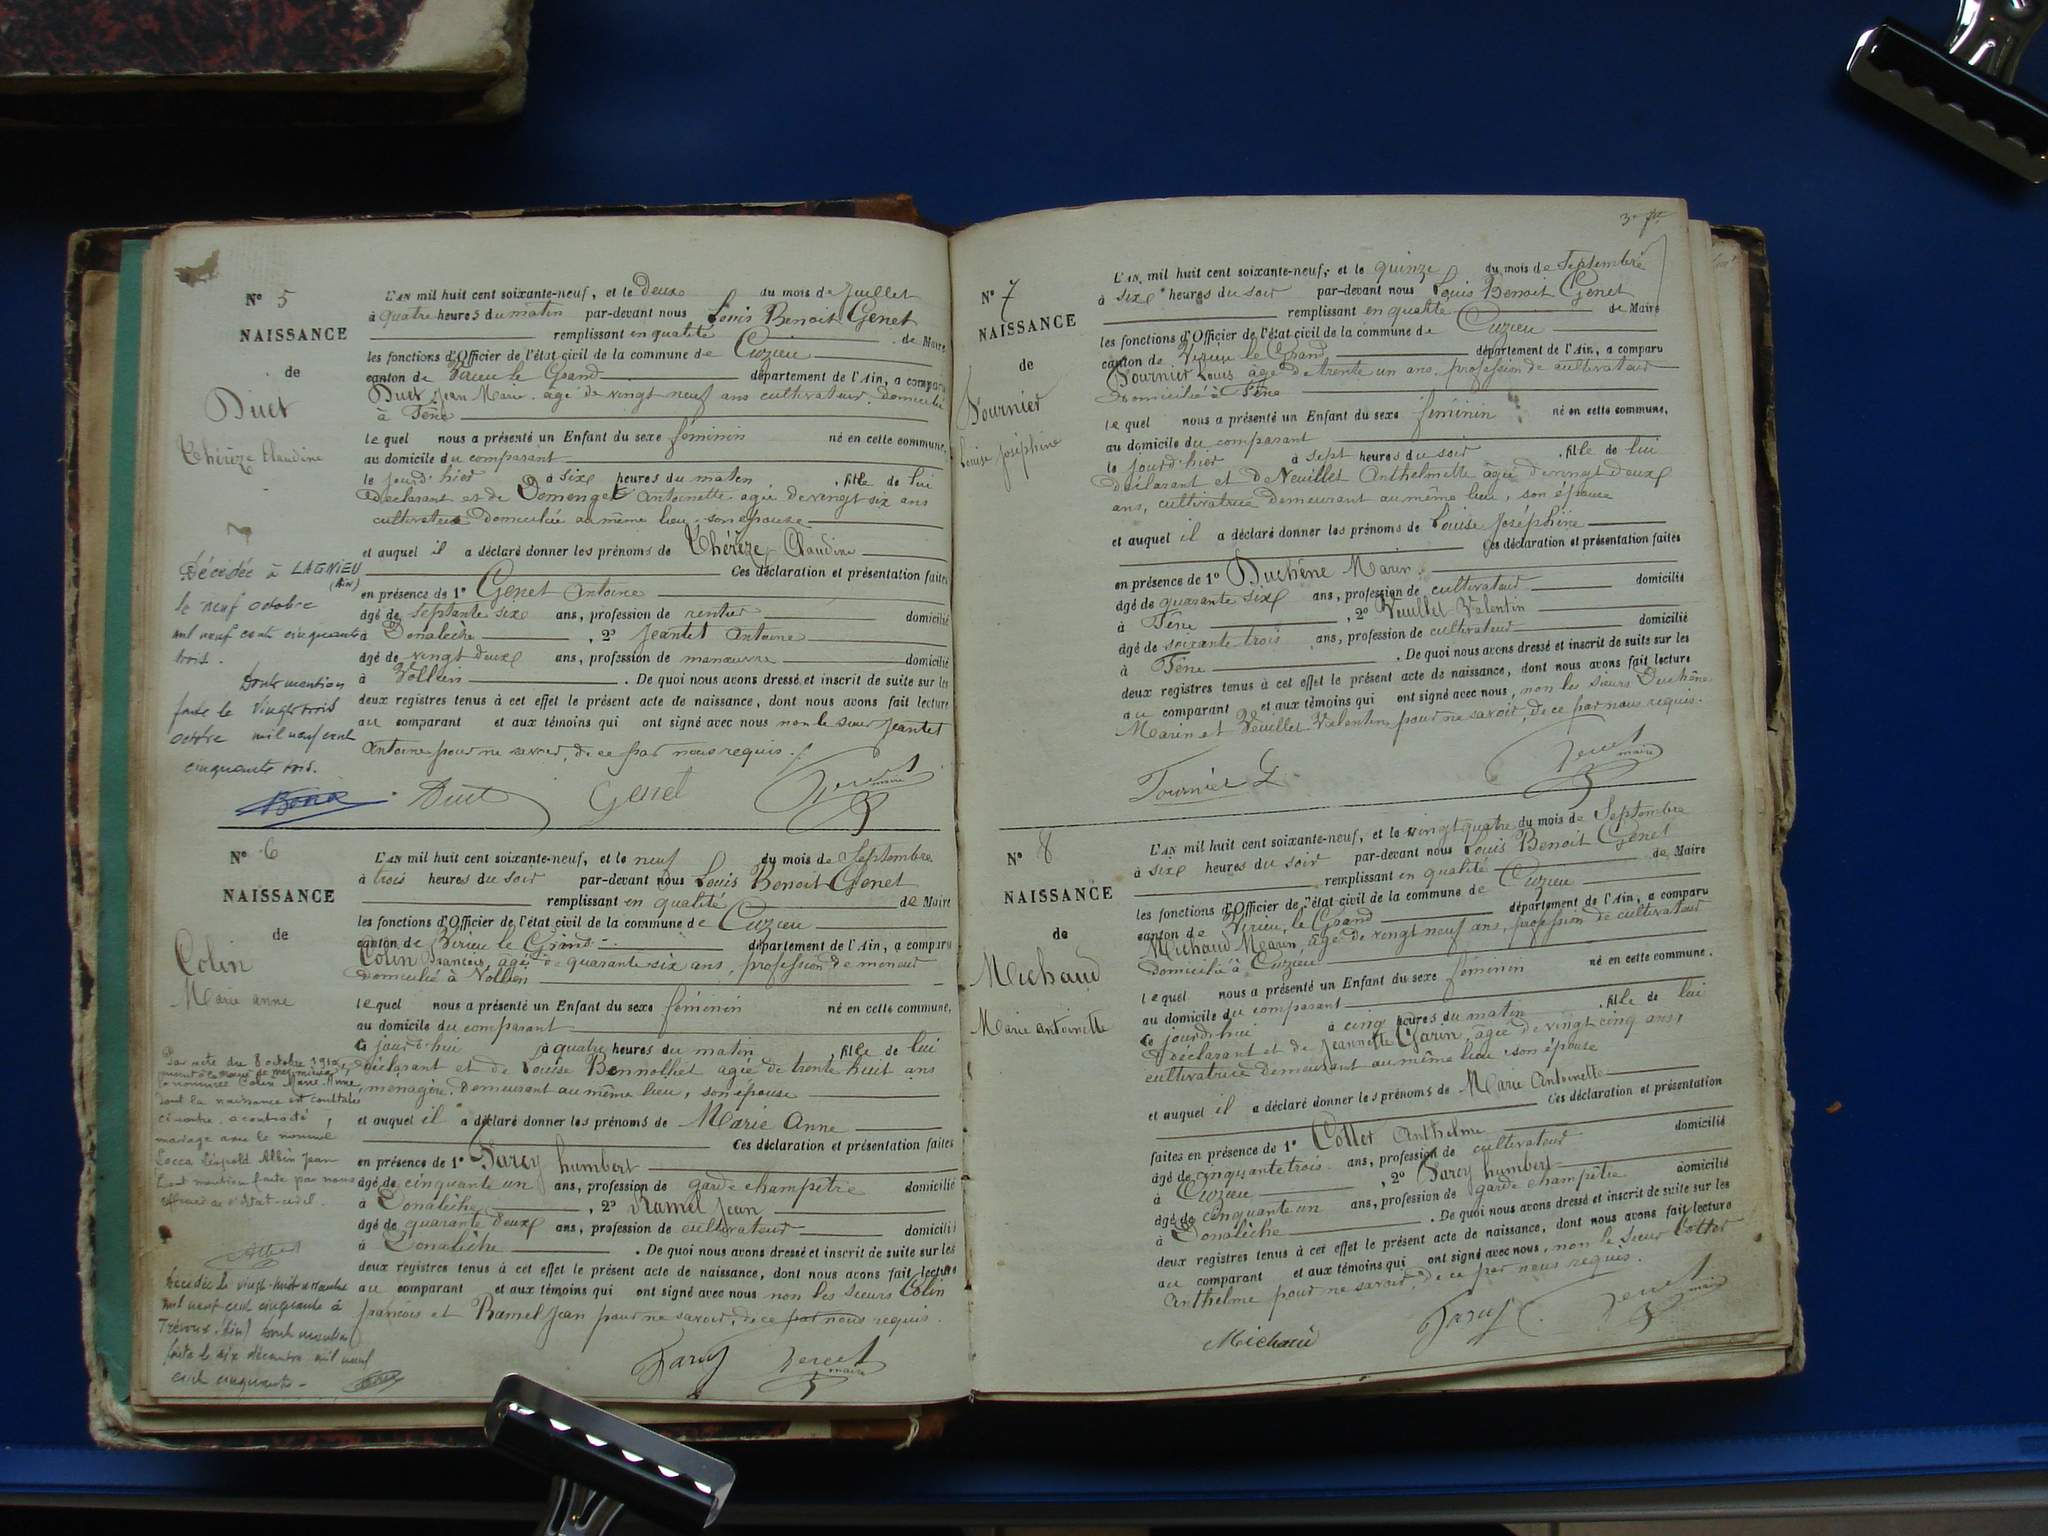 N° 5
NAISSANCE
de
Duct
Thérèze Claudine
Décédée à LAGNIEU
(Ain)
le neuf octobre
mil neuf cent cinquante
trois.
Dont mention
faite le vingt trois
octobre mil neuf cent
cinquante trois.
L'AN mil huit cent soixante-neuf, et le deux du mois de Juillet
à quatre heures du matin par-devant nous Louis Benoit Genet
remplissant en qualité de Maire
les fonctions d'Officier de l'état civil de la commune de Cuzieu
canton de Virieu le Grand département de l'Ain, a comparu
Duct Jean Marie âgé de vingt neuf ans cultivateur domicilié
à Fêne
lequel nous a présenté un Enfant du sexe féminin né en cette commune,
au domicile du comparant
le jour d'hier à six heures du matin, fille de lui
déclarant et de Demenget Antoinette agée de vingt six ans
cultivateur domiciliée au même lieu, son épouse
et auquel il a déclaré donner les prénoms de Thérèze Claudine
Ces déclaration et présentation faites
en présence de 1° Genet Antoine
âgé de septante six ans, profession de rentier domicilié
à Donalèche, 2° Jeantet Antoine
âgé de vingt deux ans, profession de manœuvre domicilié
à Vollien. De quoi nous avons dressé et inscrit de suite sur les
deux registres tenus à cet effet le présent acte de naissance, dont nous avons fait lecture
au comparant et aux témoins qui ont signé avec nous non le sieur Jeantet
Antoine pour ne savoir, de ce par nous requis.
Duct Genet Genet maire
N° 6
NAISSANCE
de
Colin
Marie anne
Par acte du 8 octobre 1910,
la nommée Colin Marie-Anne,
dont la naissance est constatée
ci contre, a contracté
mariage avec le nommé
Locca Léopold Albin Jean
Dont mention faite par nous
officier de l'état-civil.
Décédée le vingt-huit
mil neuf cent cinquante à
Trévoux (Ain) dont mention
faite le dix décembre mil neuf
cent cinquante.
L'AN mil huit cent soixante-neuf, et le neuf du mois de Septembre
à trois heures du soir par-devant nous Louis Benoit Genet
remplissant en qualité de Maire
les fonctions d'Officier de l'état civil de la commune de Cuzieu
canton de Virieu le Grand département de l'Ain, a comparu
Colin François, âgé de quarante six ans, profession de meneur
domicilié à Vollien
lequel nous a présenté un Enfant du sexe féminin né en cette commune,
au domicile du comparant
ce jour d'hui à quatre heures du matin, fille de lui
déclarant et de Louise Bonnollet agée de trente huit ans
ménagère, demeurant au même lieu, son épouse
et auquel il a déclaré donner les prénoms de Marie Anne
Ces déclaration et présentation faites
en présence de 1° Darcy humbert
âgé de cinquante un ans, profession de garde champêtre domicilié
à Donalèche, 2° Ramel Jean
âgé de quarante deux ans, profession de cultivateur domicilié
à Donalèche. De quoi nous avons dressé et inscrit de suite sur les
deux registres tenus à cet effet le présent acte de naissance, dont nous avons fait lecture
au comparant et aux témoins qui ont signé avec nous non les sieurs Colin
françois et Ramel Jean pour ne savoir, de ce par nous requis.
Darcy Genet maire
N° 7
NAISSANCE
de
Fournier
Louise Joséphine
L'AN mil huit cent soixante-neuf, et le quinze du mois de Septembre
à six heures du soir par-devant nous Louis Benoit Genet
remplissant en qualité de Maire
les fonctions d'Officier de l'état civil de la commune de Cuzieu
canton de Virieu le Grand département de l'Ain, a comparu
Fournier Louis âgé de trente un ans, profession de cultivateur
domicilié à Fêne
lequel nous a présenté un Enfant du sexe féminin né en cette commune,
au domicile du comparant
le jour d'hier à sept heures du soir, fille de lui
déclarant et de Veuillet Anthelmette âgée de vingt deux
ans, cultivatrice demeurant au même lieu, son épouse
et auquel il a déclaré donner les prénoms de Louise Joséphine
Ces déclaration et présentation faites
en présence de 1° Duchêne Marin
âgé de quarante six ans, profession de cultivateur domicilié
à Fêne, 2° Veuillet Valentin
âgé de soixante trois ans, profession de cultivateur domicilié
à Fêne. De quoi nous avons dressé et inscrit de suite sur les
deux registres tenus à cet effet le présent acte de naissance, dont nous avons fait lecture
au comparant et aux témoins qui ont signé avec nous, non les sieurs Duchêne
Marin et Veuillet Valentin pour ne savoir, de ce par nous requis.
Fournier L Genet maire
N° 8
NAISSANCE
de
Michaud
Marie Antoinette
L'AN mil huit cent soixante-neuf, et le vingt quatre du mois de Septembre
à six heures du soir par-devant nous Louis Benoit Genet
remplissant en qualité de Maire
les fonctions d'Officier de l'état civil de la commune de Cuzieu
canton de Virieu le Grand département de l'Ain, a comparu
Michaud Marin, âgé de vingt neuf ans, profession de cultivateur
domicilié à Cuzieu
lequel nous a présenté un Enfant du sexe féminin né en cette commune,
au domicile du comparant
ce jourd'hui à cinq heures du matin, fille de lui
déclarant et de Jeannette Garin, âgée de vingt cinq ans,
cultivatrice demeurant au même lieu, son épouse
et auquel il a déclaré donner les prénoms de Marie Antoinette
Ces déclaration et présentation
faites en présence de 1° Collet Anthelme domicilié
âgé de cinquante trois ans, profession de cultivateur
à Cuzieu, 2° Darcy humbert
âgé de cinquante un ans, profession de garde champêtre domicilié
à Donalèche. De quoi nous avons dressé et inscrit de suite sur les
deux registres tenus à cet effet le présent acte de naissance, dont nous avons fait lecture
au comparant et aux témoins qui ont signé avec nous, non le sieur Collet
Anthelme pour ne savoir, de ce par nous requis.
Michaud Darcy Genet maire